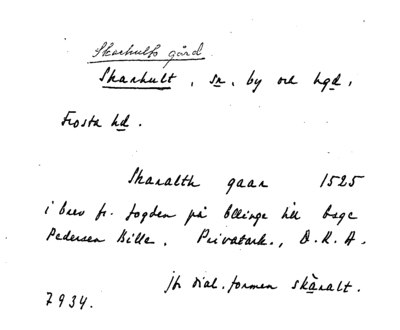 Skarhults gård
Skarhult, sn, by och hgd,
Frosta hd.
Skaralth gaar 1525
i brev fr. fogden på Ellinge till Aage
Pedersen Bille. Privatark., D.R.A.
jfr dial. formen skàralt.
7934.